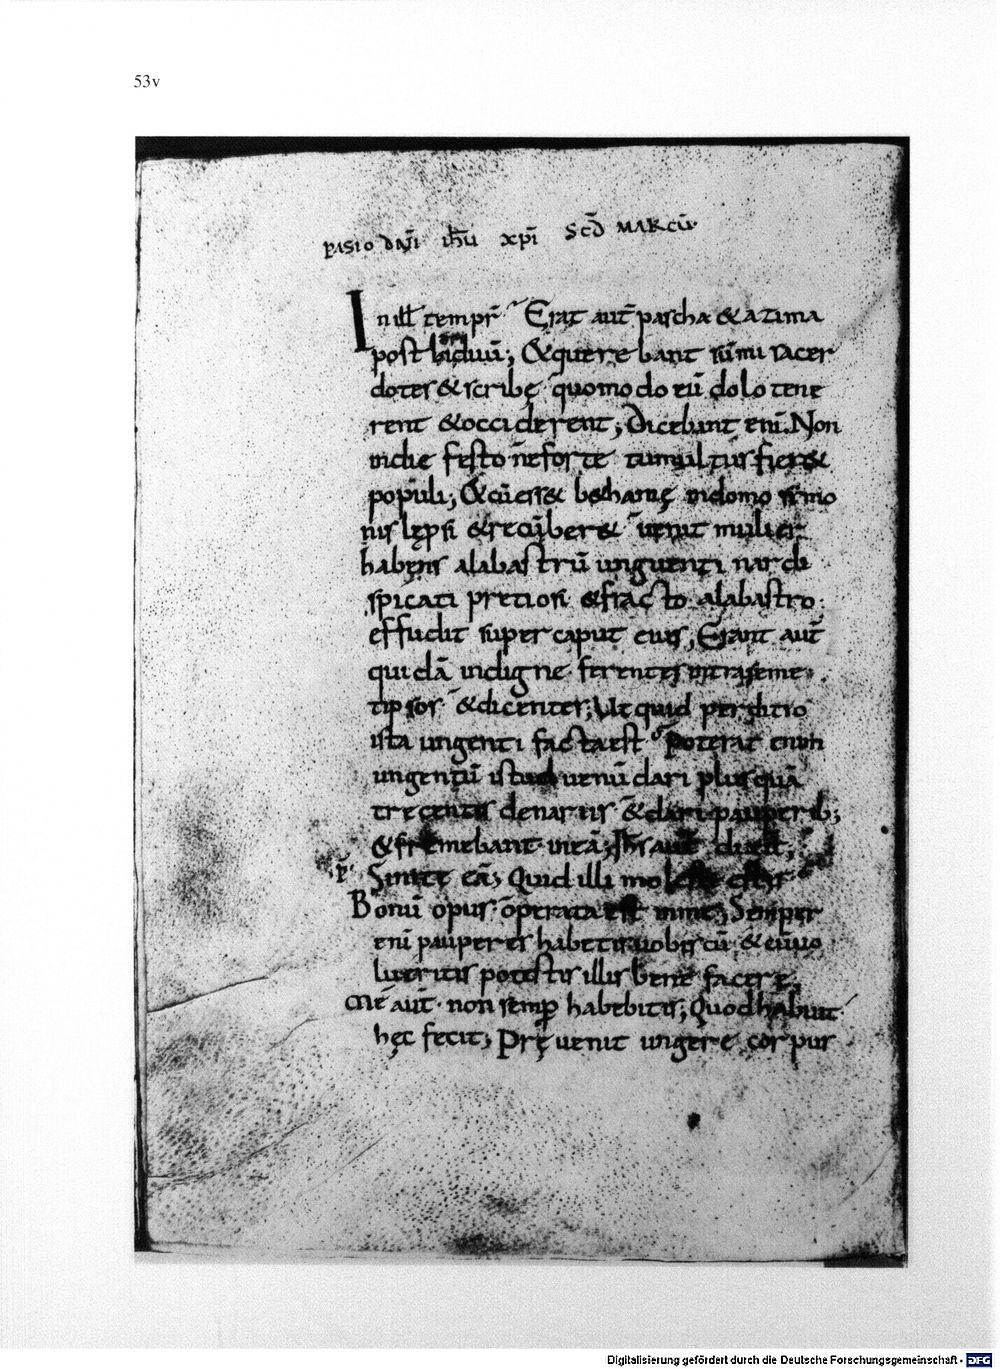 53v
PASIO DN̄I IH̄U XP̄I SCD̄ MARCŪ
In ill̄ tempr̄ Erat aut̄ pascha & azima
post biduū; & querebant sūmi sacer
dotes & scribę quomodo eū dolo tene
rent & occiderent; Dicebant enī. Non
in die festo ne forte tumultus fier&
populi; & cū ess& b&hanię in domo simo
nis lęprosi & recūber& uenit mulier
habens alabastrū unguenti nardi
spicati pretiosi & fracto alabastro
effudit super caput eius; Erant aut̄
quidā indigne ferentes intra seme
tipsos & dicentes; Ut quid perditio
ista ungenti facta est poterat enim
ungentū istud uenūdari plus quā
trecentis denariis & dari pauperib;
& fremebant in eā; Ih̄s aut̄ dixit;
Sinite eā; Quid illi molesti estis
Bonū opus operata est in me; Semper
enī pauperes habetis uobiscū & cū uo
lueritis potestis illis bene facere,
me aut̄ non semꝑ habebitis; Quod habuit
hęc fecit; Pręuenit ungere corpus
Digitalisierung gefördert durch die Deutsche Forschungsgemeinschaft - DFG